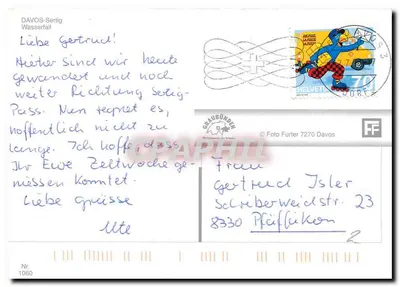 DAVOS-Sertig
Wasserfall
Liebe Gertrud!
Hierher sind wir heute
gewandert und noch
weiter Richtung Sertig-
Pass. Nun regnet es,
hoffentlich nicht zu
lange. Ich hoffe, dass
Ihr Eure Zeltwoche ge-
niessen konntet.
Liebe Grüsse
Ute
Nr.
1060
GRAUBÜNDEN
DAVOS 3
HELVETIA
70
© Foto Furter 7270 Davos
FF
Frau
Gertrud Isler
Schreiberweidstr. 23
8330 Pfäffikon
2